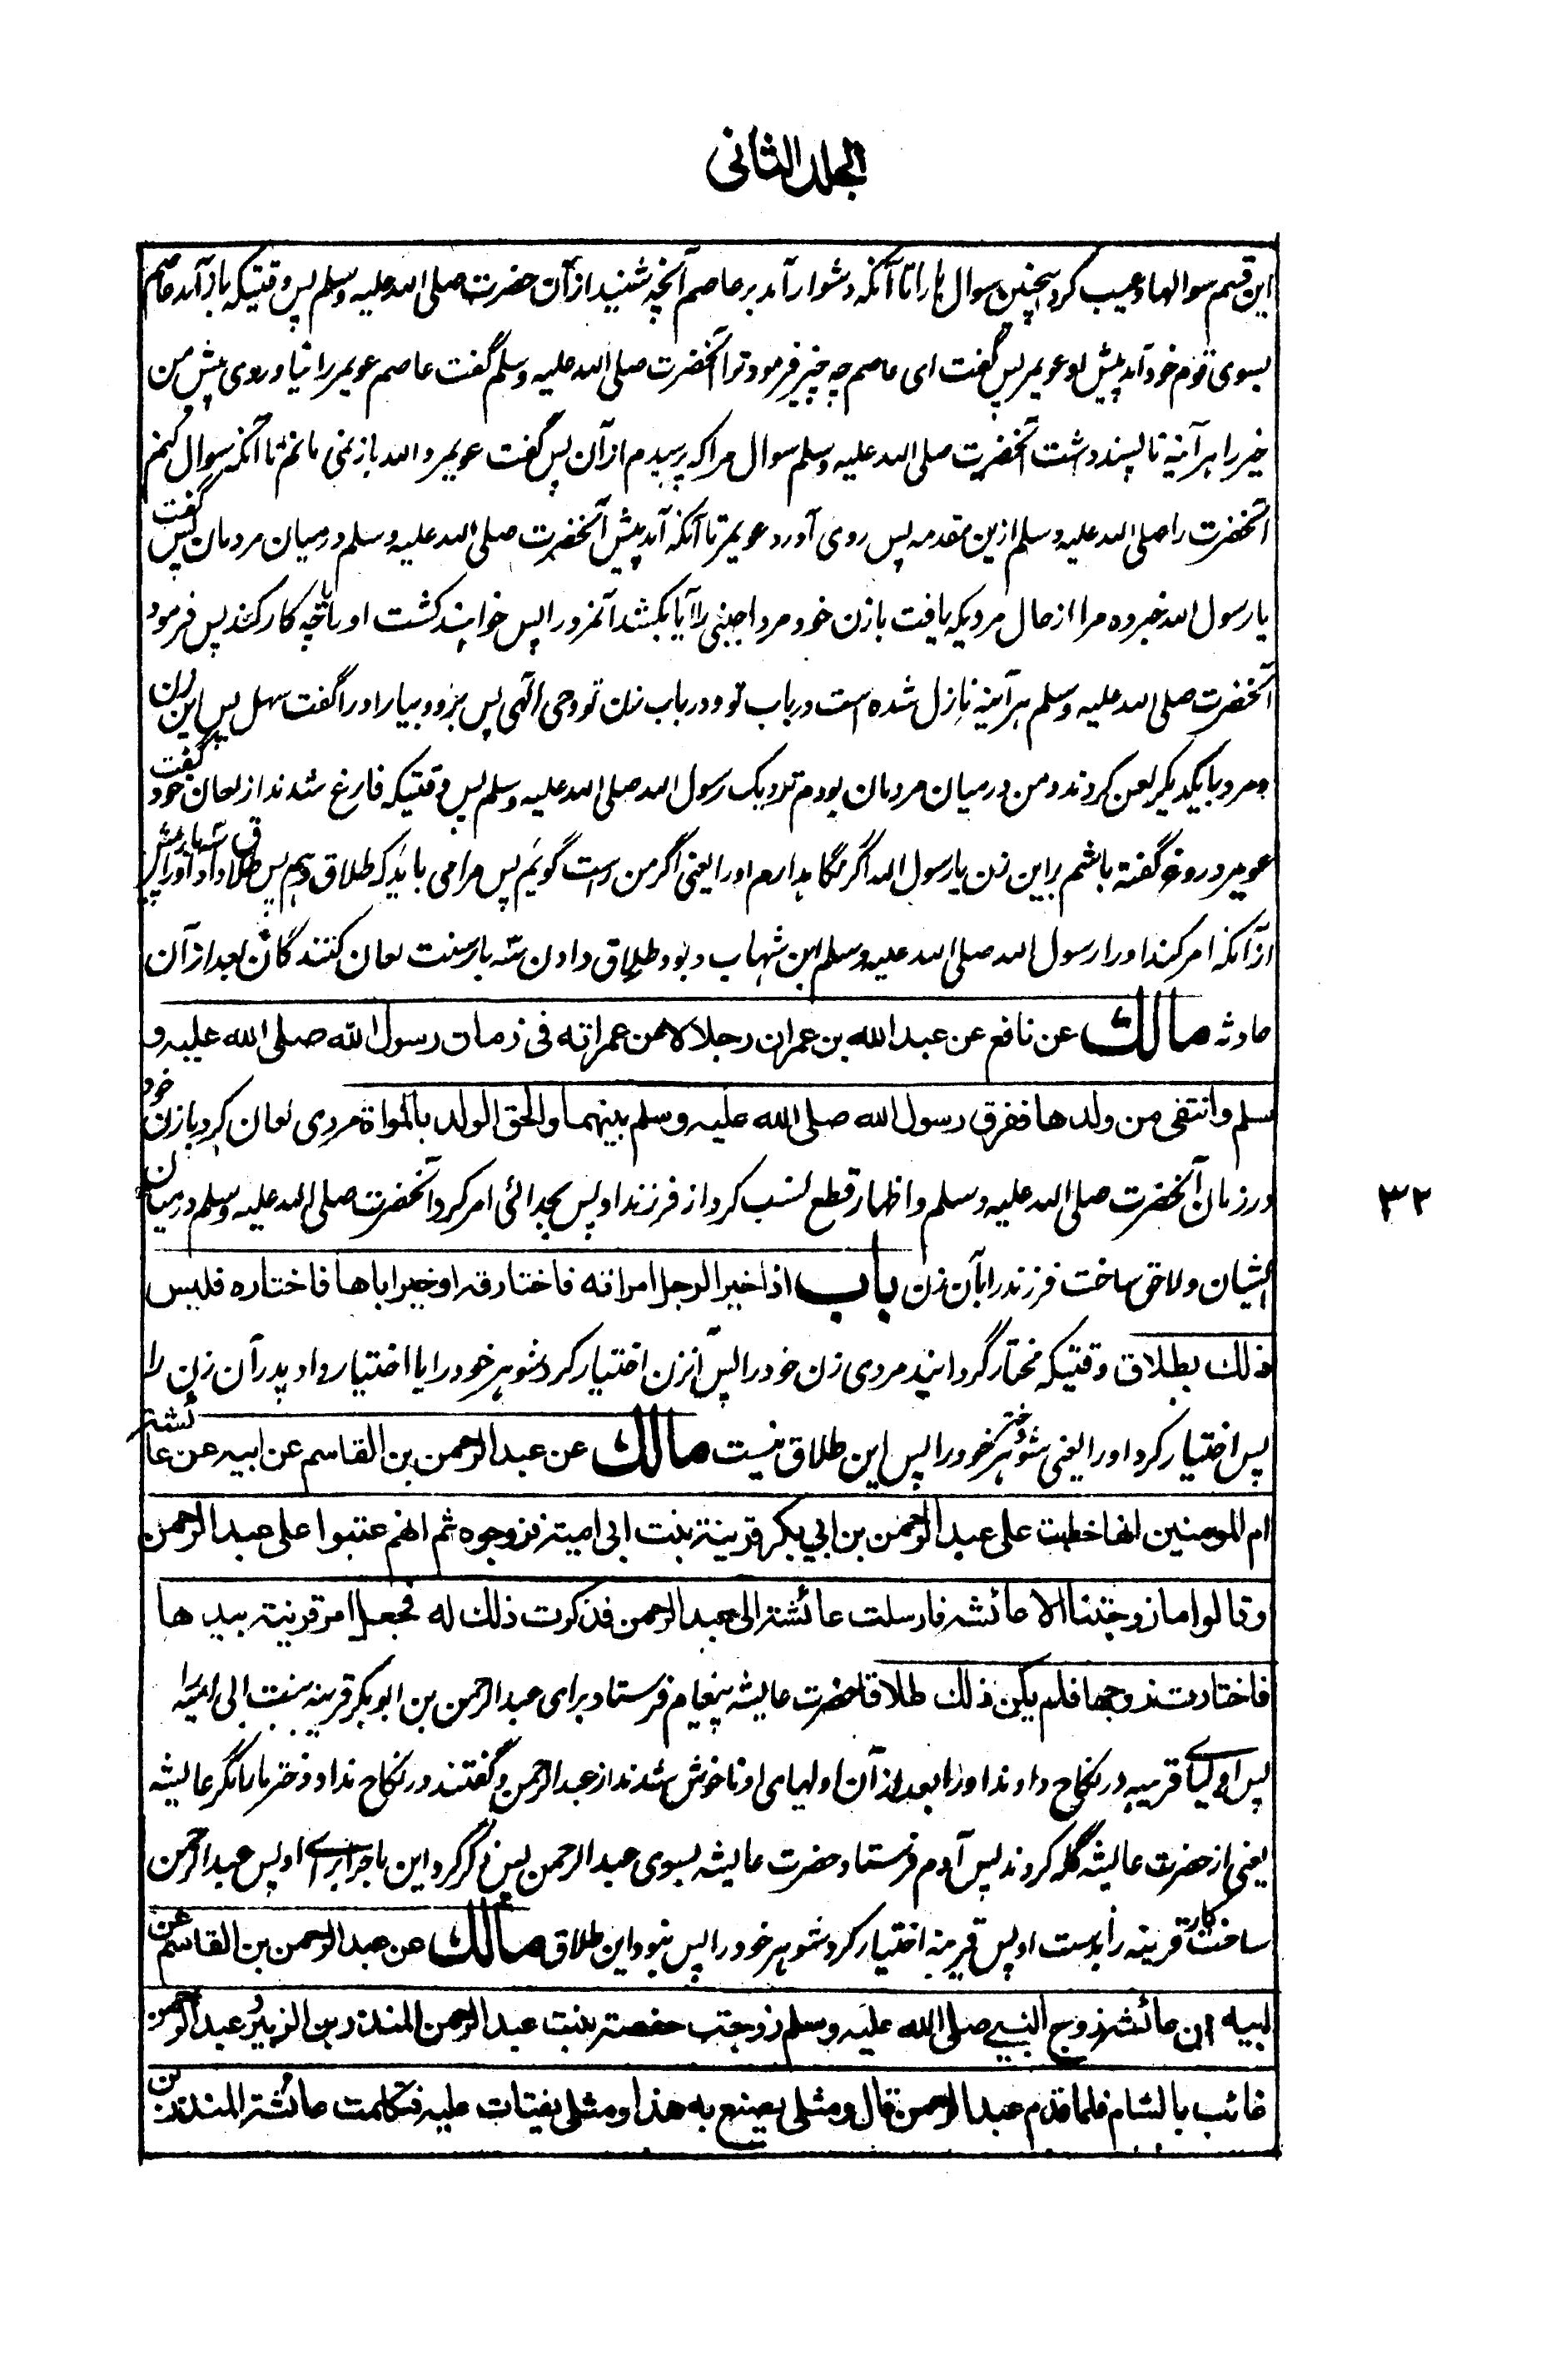 الجلد الثانی
این قسم سوالها و عیب کرد همچنین سوال ها را تا آنکه دشوار آمد بر عاصم آنچه شنید از آن حضرت صلی الله علیه وسلم پس وقتیکه باز آمد عاصم
بسوی قوم خود آمد پیش او عویمر پس گفت ای عاصم چه چیز فرمود ترا آنحضرت صلی الله علیه وسلم گفت عاصم عویمر را نیاوردی پیش من
خیر را هر آئینه ناپسند داشت آنحضرت صلی الله علیه وسلم سوال مرا که پرسیدم از آن پس گفت عویمر والله باز نمی مانم تا آنکه سوال کنم
آنحضرت را صلی الله علیه وسلم ازین مقدمه پس روی آورد عویمر تا آنکه آمد پیش آنحضرت صلی الله علیه وسلم درمیان مردمان پس گفت
یا رسول الله خبر ده مرا از حال مردیکه یافت با زن خود مرد اجنبی را آیا بکشد آنمرد را پس خواهند کشت او را یا چه کار کند پس فرمود
آنحضرت صلی الله علیه وسلم هر آئینه نازل شده است در باب تو و در باب زن تو وحی الهی پس برو و بیار او را گفت سهل پس این زن
و مرد با یکدیگر لعن کردند و من درمیان مردمان بودم نزدیک رسول الله صلی الله علیه وسلم پس وقتیکه فارغ شدند از لعان خود گفت
عویمر دروغ گفته باشم بر این زن یا رسول الله اگر نگاهدارم او را یعنی اگر من راست گویم پس مرا می باید که طلاق دهم پس طلاق داد او را سه بار پیش
از آنکه امر کند او را رسول الله صلی الله علیه وسلم ابن شهاب و بود طلاق دادن سه بار سنت لعان کنندگان بعد از آن
حادثه مالك عن نافع عن عبدالله بن عمر ان رجلا لاعن امراته فی زمان رسول الله صلی الله علیه و
سلم وانتفی من ولدها ففرق رسول الله صلی الله علیه وسلم بینهما والحق الولد بالمراة مردی لعان کرد با زن خود
در زمان آنحضرت صلی الله علیه وسلم و اظهار قطع نسب کرد از فرزند او پس بجدائی امر کرد آنحضرت صلی الله علیه وسلم درمیان
ایشان و لاحق ساخت فرزند را بآن زن باب اذا خیر الرجل امراته فاختارته او خیر اباها فاختاره فلیس
ذلك بطلاق وقتیکه مختار گردانید مردی زن خود را پس آنزن اختیار کرد شوهر خود را یا اختیار داد پدر آن زن را
پس اختیار کرد او را یعنی شوهر دختر خود را پس این طلاق نیست مالك عن عبدالرحمن بن القاسم عن ابیه عن عائشة
ام المومنین انها خطبت علی عبدالرحمن بن ابی بکر قرینة بنت ابی امیة فزوجوه ثم انهم عتبوا علی عبدالرحمن
وقالوا ما زوجتنا الا عائشه فارسلت عائشة الی عبدالرحمن فذکرت ذلك له فجعل امر قرینة بیدها
فاختارت زوجها فلم یکن ذلك طلاقا حضرت عایشه پیغام فرستاد برای عبدالرحمن بن ابوبکر قرینه بنت ابی امیه را
پس اولیای قرینه در نکاح دادند او را بعد از آن اولیای او ناخوش شدند از عبدالرحمن و گفتند در نکاح نداد دختر ما را مگر عایشه
یعنی از حضرت عایشه گله کردند پس آدم فرستاد حضرت عایشه بسوی عبدالرحمن پس ذکر کرد این ماجرا برای او پس عبدالرحمن
ساخت کار قرینه را بدست او پس قرینه اختیار کرد شوهر خود را پس نبود این طلاق مالك عن عبدالرحمن بن القاسم عن
ابیه ان عائشة زوج النبی صلی الله علیه وسلم زوجت حفصة بنت عبدالرحمن المنذر بن الزبیر و عبدالرحمن
غائب بالشام فلما قدم عبدالرحمن قال ومثلی یصنع به هذا ومثلی یفتات علیه فکلمت عائشة المنذر بن
۳۲